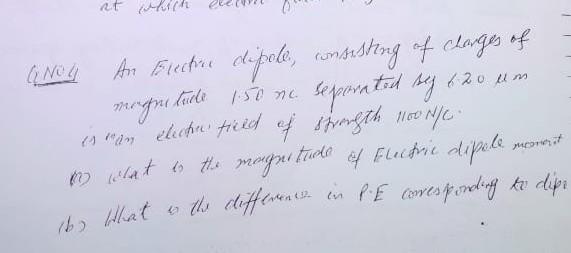 at which electric
Q No 4 An Electric dipole, consisting of charges of
magnitude 1.50 nc separated by 6.20 µm
is in an electric field of strength 1100 N/C.
(a) what is the magnitude of Electric dipole moment
(b) What is the difference in P.E corresponding to dipo